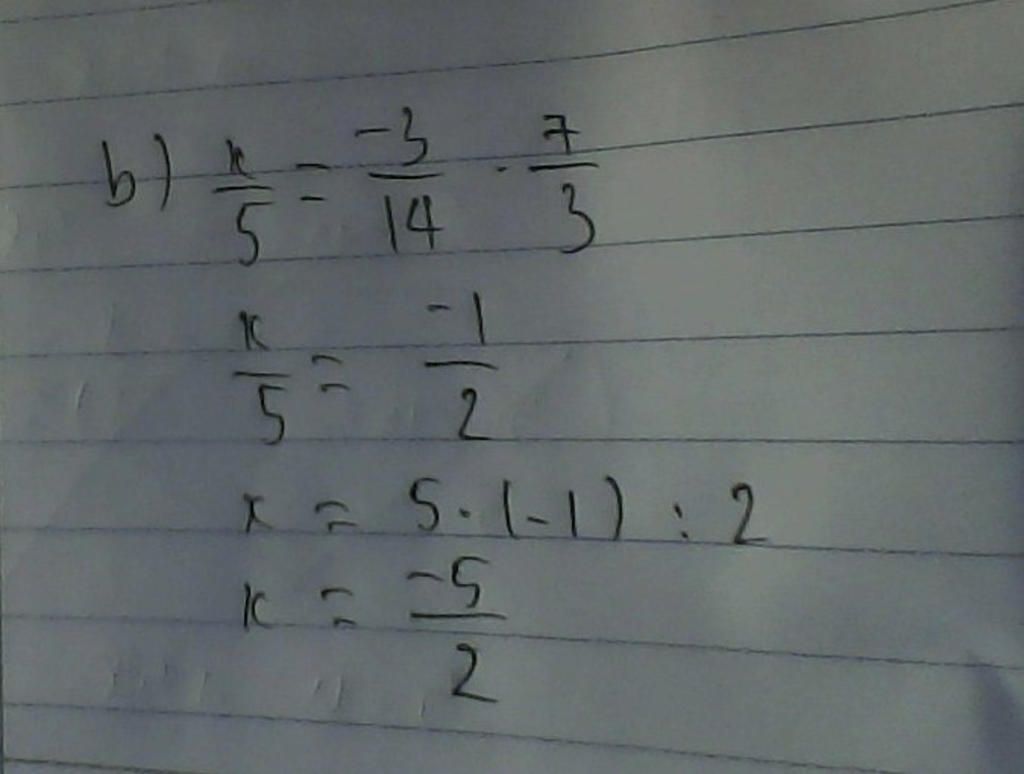 b) x/5 = -3/14 · 7/3
x/5 = -1/2
x = 5 · (-1) : 2
x = -5/2